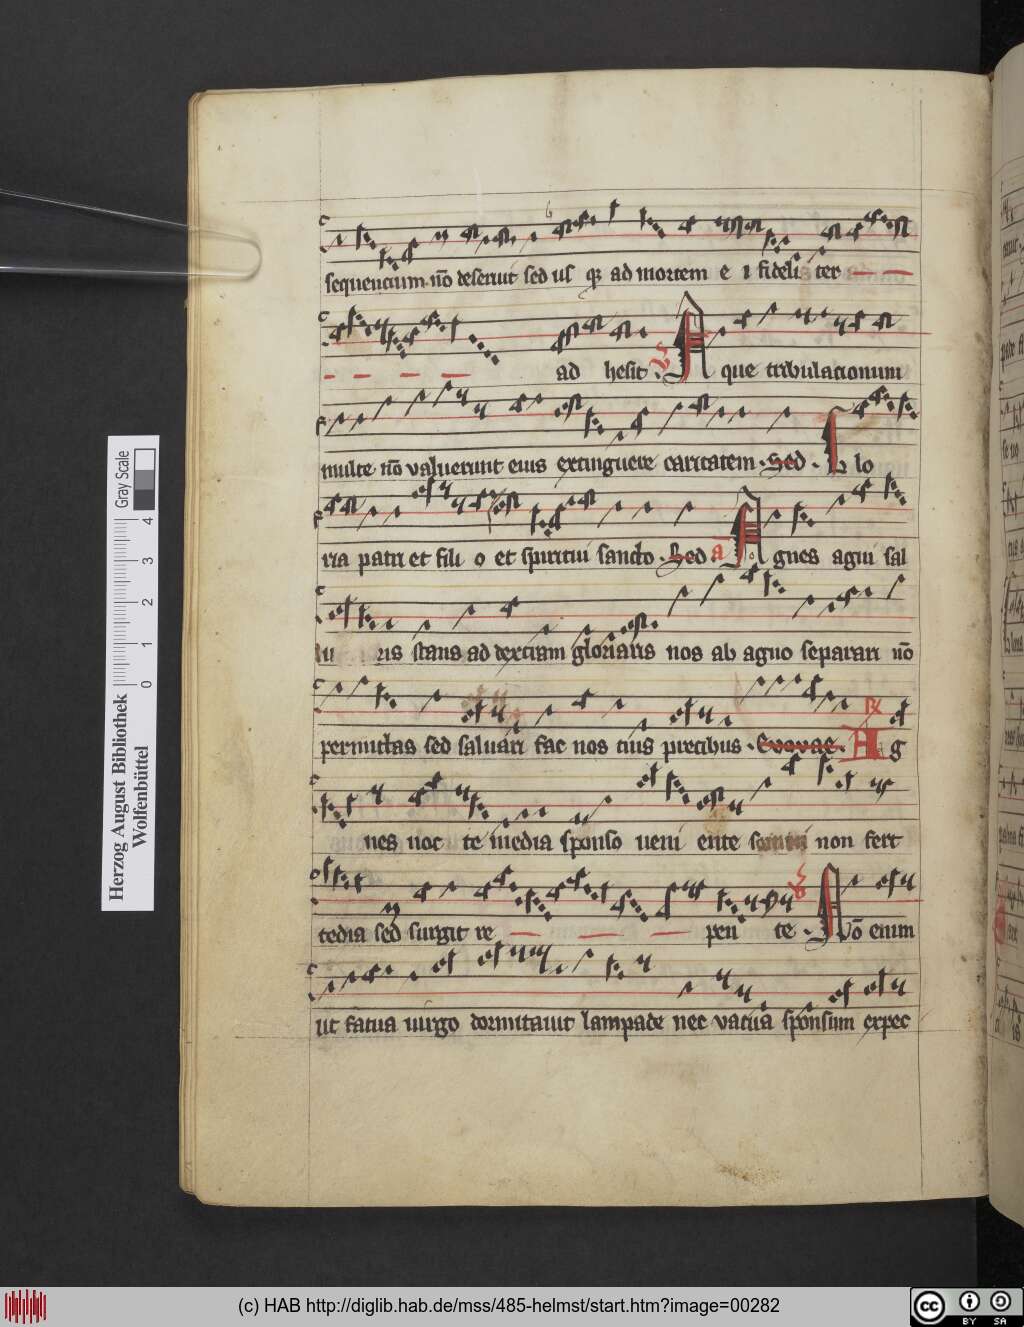 sequencium nō deseruit sed usq; ad mortem e i fideli ter
ad hesit V Aque tribulacionum
multe nō valuerunt eius extinguere caritatem Sed Glo
ria patri et fili o et spiritui sancto Sed a Agnes agni sal
uta ris stans ad dextram gloriaris nos ab agno separari nō
permittas sed saluari fac nos tuis precibus Euouae R Ag
nes noc te media sponso veni ente somni non fert
tedia sed surgit re pen te V Nō enim
ut fatua uirgo dormitauit lampade nec vacua sponsum expec
Herzog August Bibliothek
Wolfenbüttel
0 1 2 3 4
Gray Scale
(c) HAB http://diglib.hab.de/mss/485-helmst/start.htm?image=00282
cc BY SA